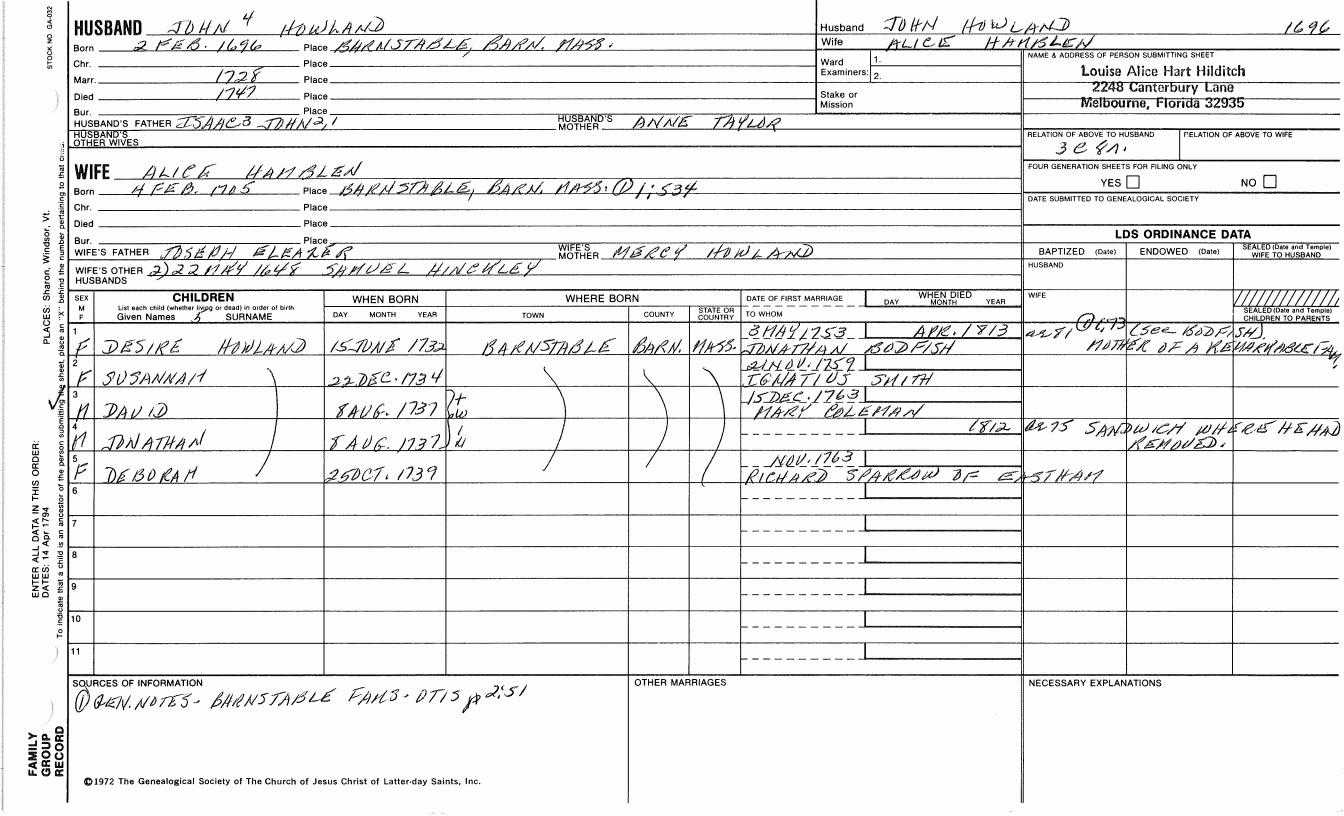 STOCK NO. GA-032
HUSBAND JOHN 4 HOWLAND
Born 2 FEB. 1696 Place BARNSTABLE, BARN. MASS.
Chr. Place
Marr. 1728 Place
Died 1747 Place
Bur. Place
HUSBAND'S FATHER ISAAC3 JOHN2,1 HUSBAND'S MOTHER ANNE TAYLOR
HUSBAND'S OTHER WIVES
Husband JOHN HOWLAND 1696
Wife ALICE HAMBLEN
Ward
Examiners: 1.
2.
Stake or
Mission
NAME & ADDRESS OF PERSON SUBMITTING SHEET
Louise Alice Hart Hilditch
2248 Canterbury Lane
Melbourne, Florida 32935
RELATION OF ABOVE TO HUSBAND RELATION OF ABOVE TO WIFE
3C 8r.
FOUR GENERATION SHEETS FOR FILING ONLY
YES NO
DATE SUBMITTED TO GENEALOGICAL SOCIETY
WIFE ALICE HAMBLEN
Born 4 FEB. 1705 Place BARNSTABLE, BARN. MASS. ① 1:534
Chr. Place
Died Place
Bur. Place
WIFE'S FATHER JOSEPH ELEAZER WIFE'S MOTHER MERCY HOWLAND
WIFE'S OTHER HUSBANDS 2) 22 MAY 1648 SAMUEL HINCKLEY
LDS ORDINANCE DATA
BAPTIZED (Date) ENDOWED (Date) SEALED (Date and Temple) WIFE TO HUSBAND
HUSBAND
WIFE
SEALED (Date and Temple) CHILDREN TO PARENTS
SEX M F CHILDREN WHEN BORN WHERE BORN DATE OF FIRST MARRIAGE WHEN DIED
List each child (whether living or dead) in order of birth
Given Names 5 SURNAME DAY MONTH YEAR TOWN COUNTY STATE OR COUNTRY TO WHOM DAY MONTH YEAR
1 3 MAY 1753 APR. 1813 ae 81, ① 1,73 (SEE BODFISH)
F DESIRE HOWLAND 15 JUNE 1732 BARNSTABLE BARN. MASS. JONATHAN BODFISH MOTHER OF A REMARKABLE FAM.
2 21 NOV. 1759
F SUSANNAH 22 DEC. 1734 IGNATIUS SMITH
3 15 DEC. 1763
M DAVID 8 AUG. 1737 MARY COLEMAN
4 1812 ae 75 SANDWICH WHERE HE HAD
M JONATHAN 8 AUG. 1737 REMOVED.
5 NOV. 1763
F DEBORAH 25 OCT. 1739 RICHARD SPARROW OF EASTHAM
6
7
8
9
10
11
SOURCES OF INFORMATION
① GEN. NOTES - BARNSTABLE FAMS - OTIS p 2:51
OTHER MARRIAGES
NECESSARY EXPLANATIONS
©1972 The Genealogical Society of The Church of Jesus Christ of Latter-day Saints, Inc.
FAMILY
GROUP
RECORD
ENTER ALL DATA IN THIS ORDER:
DATES: 14 Apr 1794
PLACES: Sharon, Windsor, Vt.
To indicate that a child is an ancestor of the person submitting the sheet, place an "X" behind the number pertaining to that child.